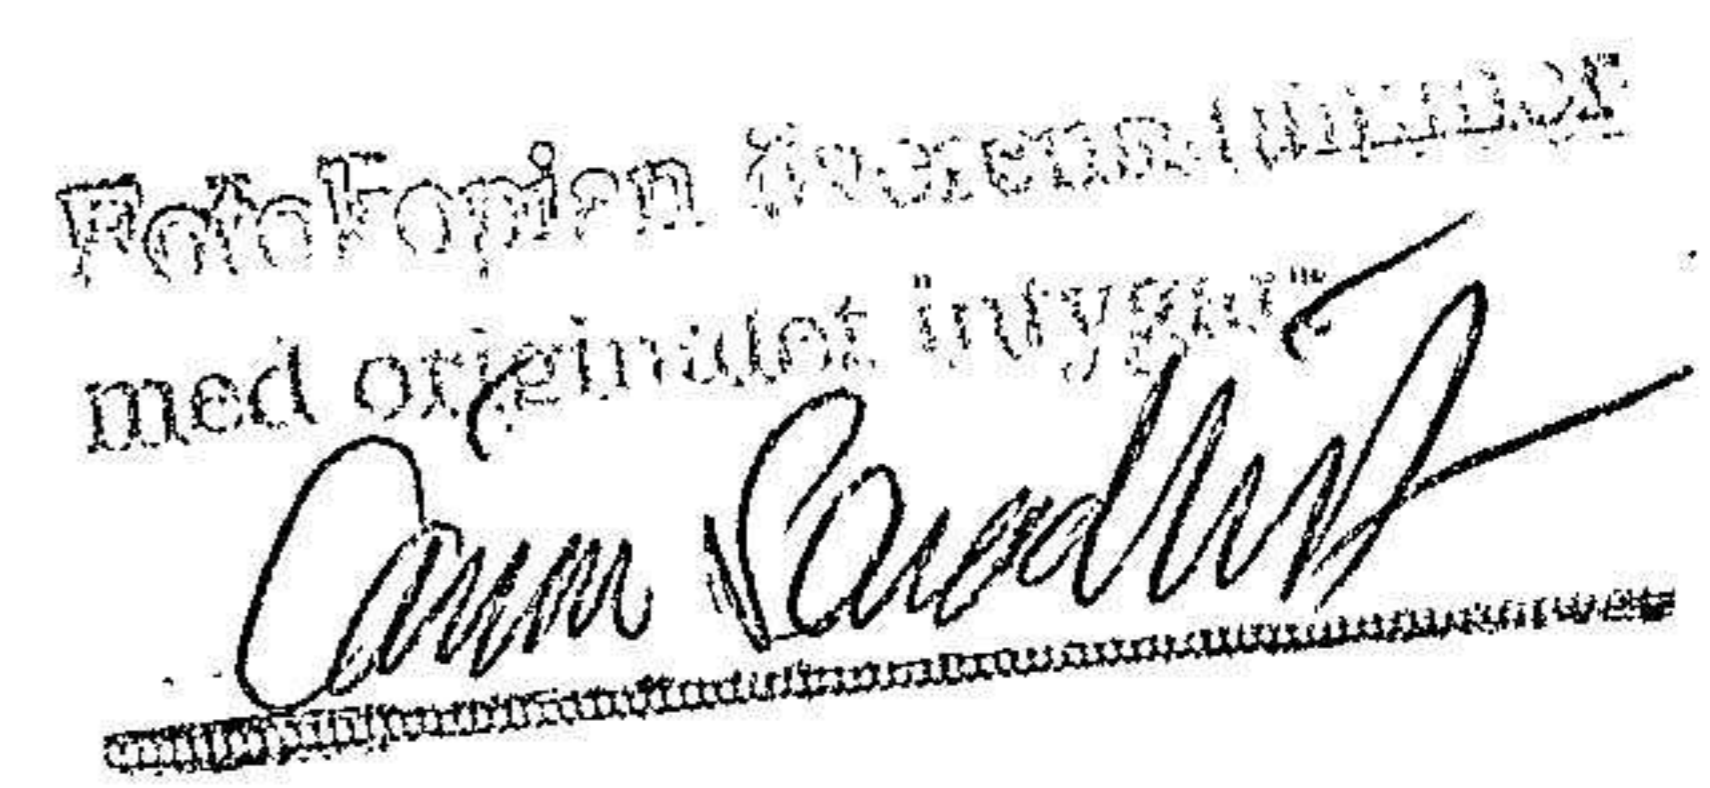 Fotokopian överensstämmer
med originalet intygar: